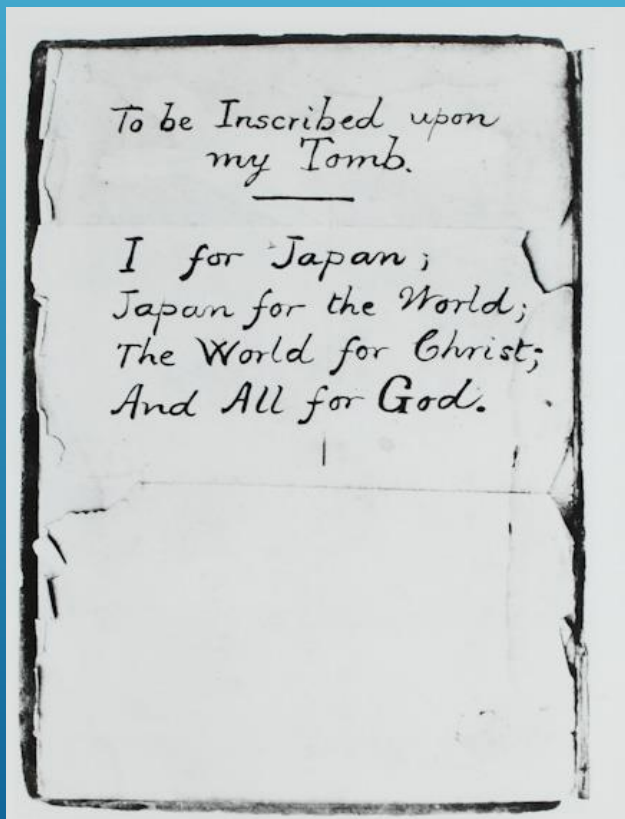 To be Inscribed upon
my Tomb.
I for Japan;
Japan for the World;
The World for Christ;
And All for God.